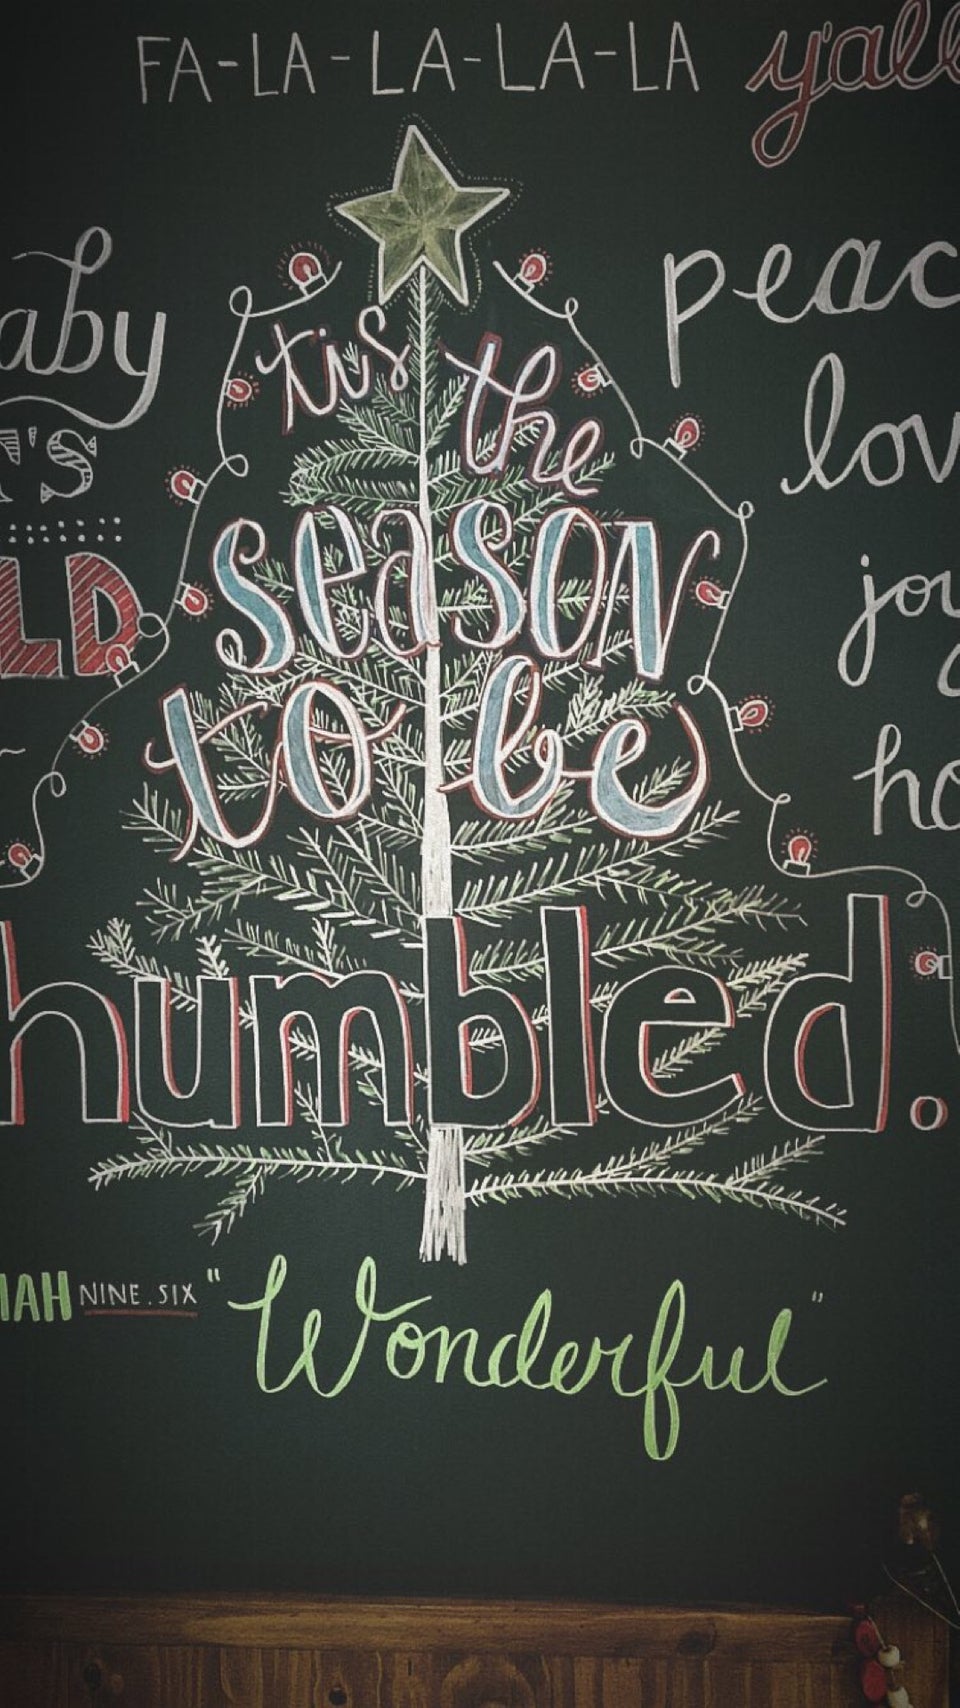 FA-LA-LA-LA-LA y'all
'tis the
season
to be
humbled.
aby
T'S
LD
peac
lov
joy
ho
IAH NINE.SIX "Wonderful"